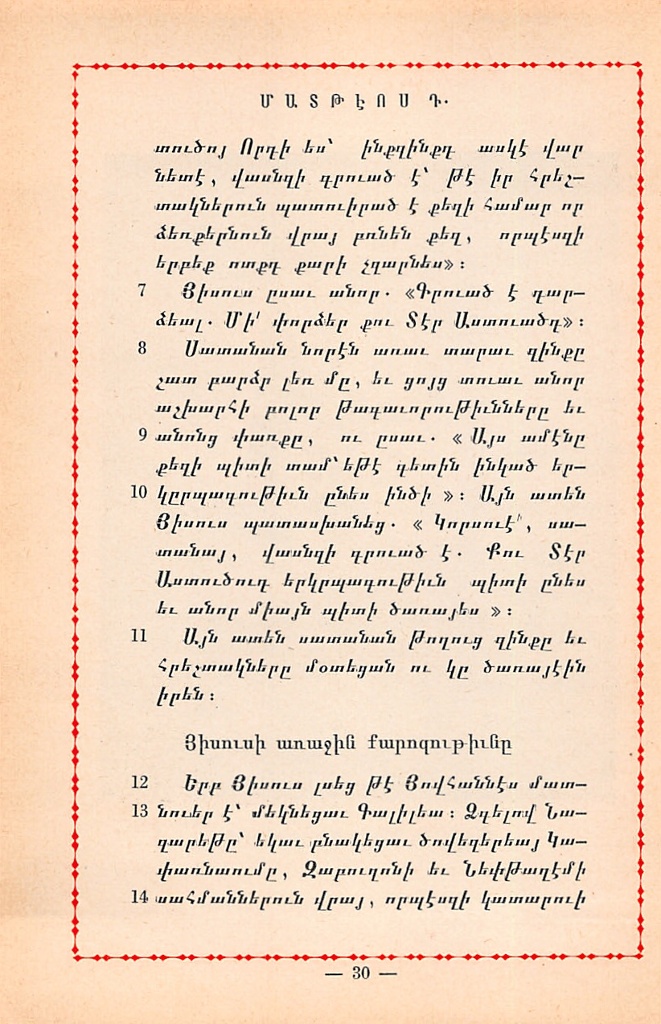 ՄԱՏԹԷՈՍ Դ.
տուծոյ Որդի ես՝ ինքզինքդ ասկէ վար
նետէ, վասնզի գրուած է՝ թէ իր հրեշ—
տակներուն պատուիրած է քեզի համար որ
ձեռքերնուն վրայ բռնեն քեզ, որպէսզի
երբեք ոտքդ քարի չզարնես»։
7 Յիսուս ըսաւ անոր. «Գրուած է դար—
ձեալ. Մի՛ փորձեր քու Տէր Աստուածդ»։
8 Սատանան նորէն առաւ տարաւ զինքը
շատ բարձր լեռ մը, եւ ցոյց տուաւ անոր
աշխարհի բոլոր թագաւորութիւնները եւ
9 անոնց փառքը, ու ըսաւ. «Այս ամէնը
քեզի պիտի տամ՝ եթէ գետին ինկած եր—
10 կըրպագութիւն ընես ինծի»։ Այն ատեն
Յիսուս պատասխանեց. «Կորսուէ՛, սա—
տանայ, վասնզի գրուած է. Քու Տէր
Աստուծուդ երկրպագութիւն պիտի ընես
եւ անոր միայն պիտի ծառայես»։
11 Այն ատեն սատանան թողուց զինքը եւ
հրեշտակները մօտեցան ու կը ծառայէին
իրեն։
Յիսուսի առաջին քարոզութիւնը
12 Երբ Յիսուս լսեց թէ Յովհաննէս մատ—
13 նուեր է՝ մեկնեցաւ Գալիլեա։ Ձգելով Նա—
զարեթը՝ եկաւ բնակեցաւ ծովեզերեայ Կա—
փառնաումը, Զաբուղոնի եւ Նեփթաղէմի
14 սահմաններուն վրայ, որպէսզի կատարուի
— 30 —